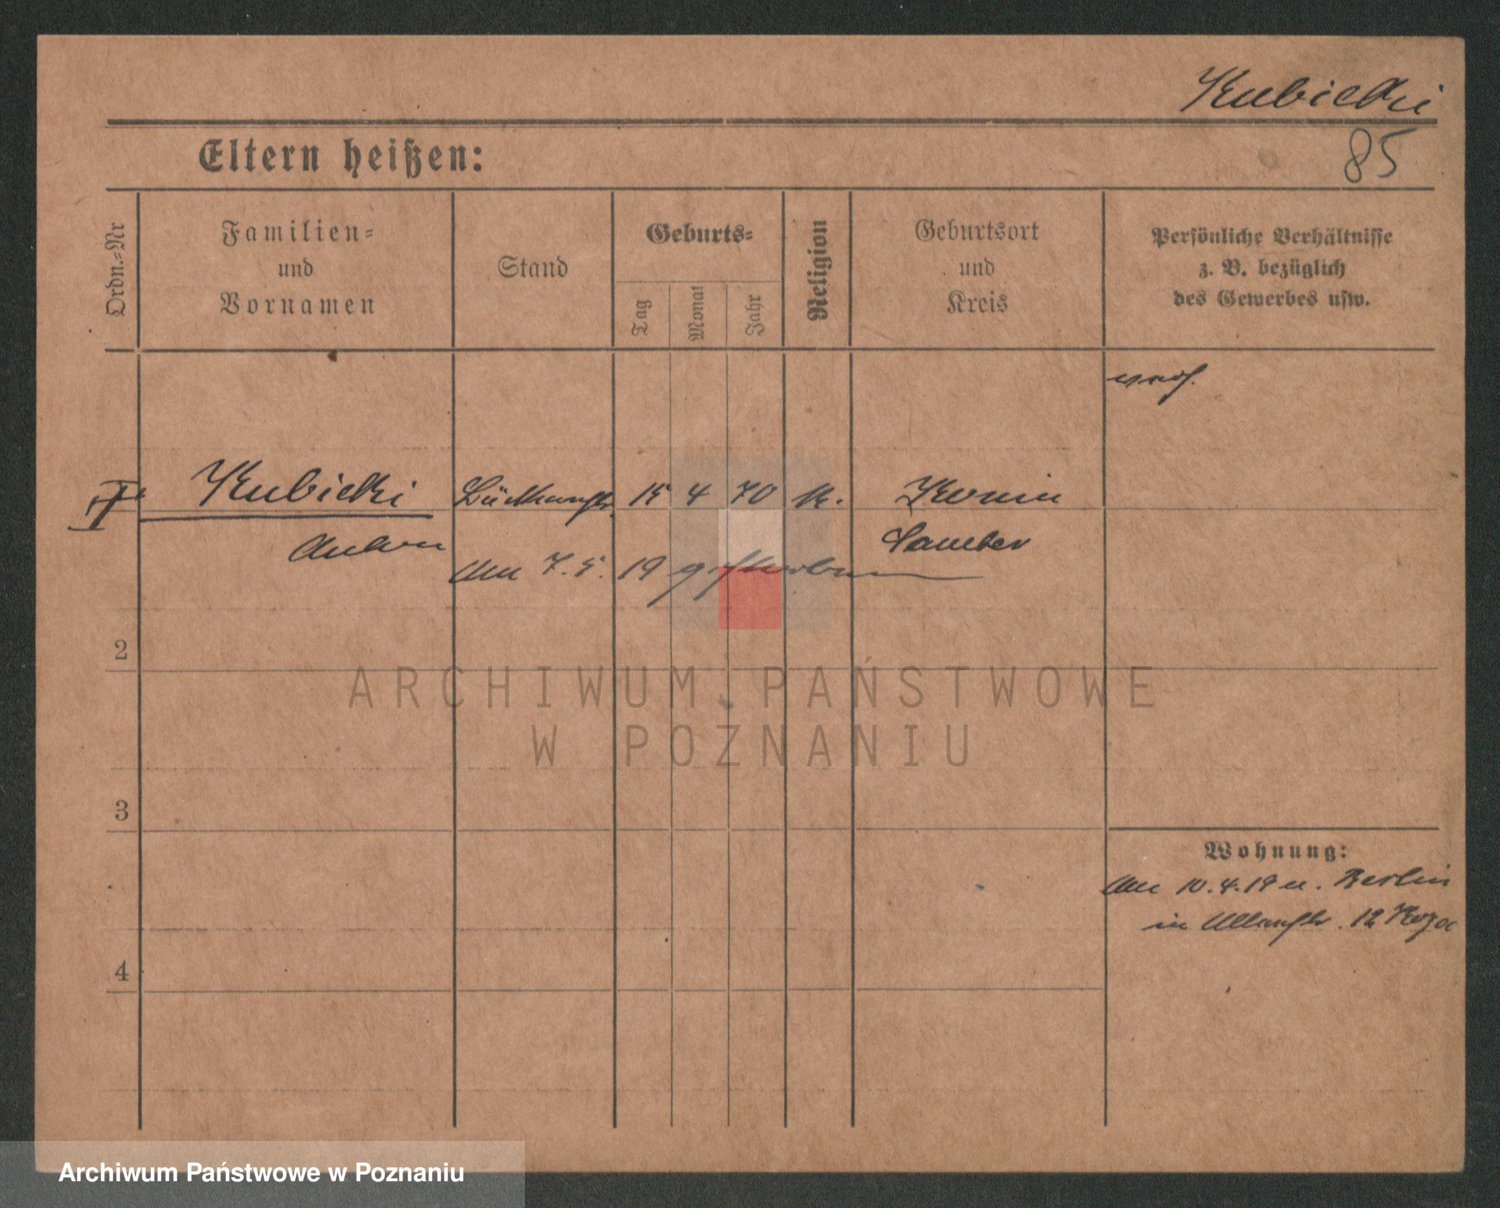 Kubicki
85
Eltern heißen:
Ordn.-Nr
Familien-
und
Vornamen
Stand
Geburts-
Tag
Monat
Jahr
Religion
Geburtsort
und
Kreis
Persönliche Verhältnisse
z. B. bezüglich
des Gewerbes usw.
Kubicki 15 4 70 K. Konin
Anton Samter
Am 7. 5. 19 gestorben
2
3
4
Wohnung:
Am 10.4.19 u. Berlin
in 12
ARCHIWUM PAŃSTWOWE
W POZNANIU
Archiwum Państwowe w Poznaniu